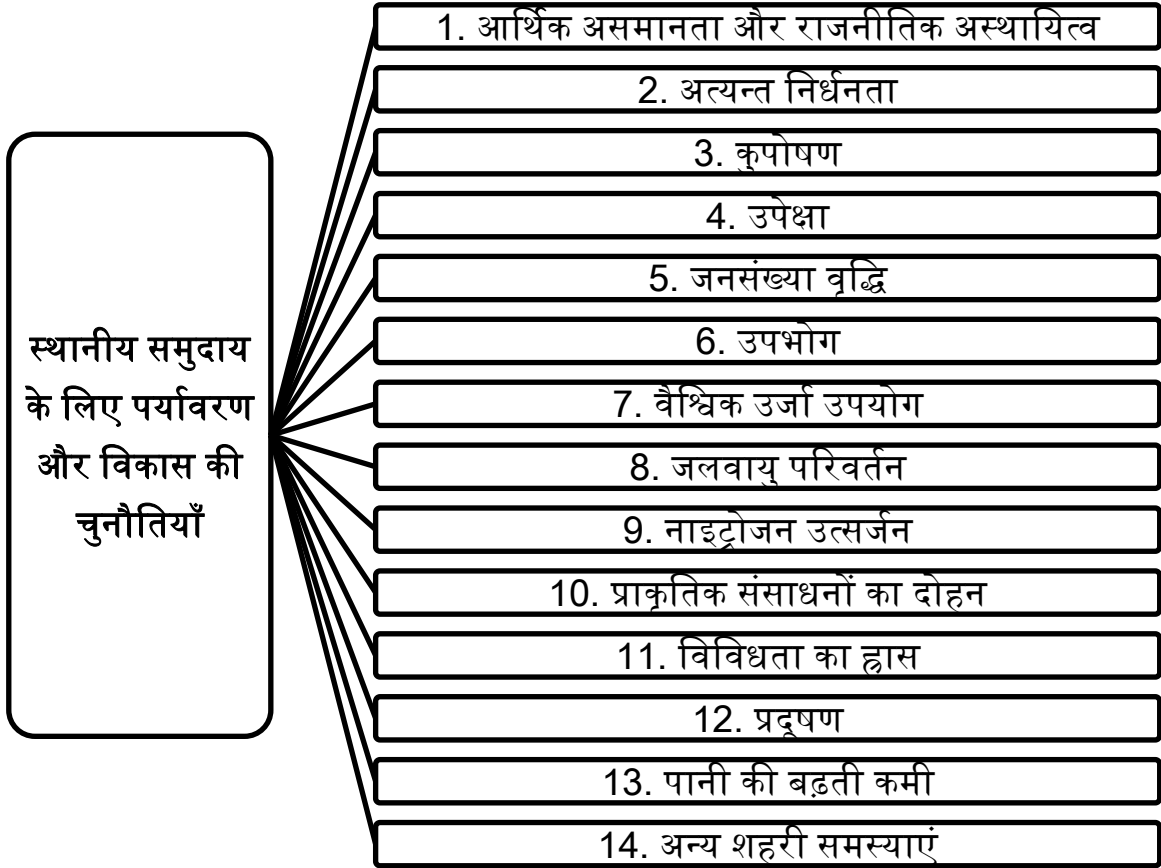 स्थानीय समुदाय
के लिए पर्यावरण
और विकास की
चुनौतियाँ
1. आर्थिक असमानता और राजनीतिक अस्थायित्व
2. अत्यन्त निर्धनता
3. कुपोषण
4. उपेक्षा
5. जनसंख्या वृद्धि
6. उपभोग
7. वैश्विक उर्जा उपयोग
8. जलवायु परिवर्तन
9. नाइट्रोजन उत्सर्जन
10. प्राकृतिक संसाधनों का दोहन
11. विविधता का ह्रास
12. प्रदूषण
13. पानी की बढ़ती कमी
14. अन्य शहरी समस्याएं